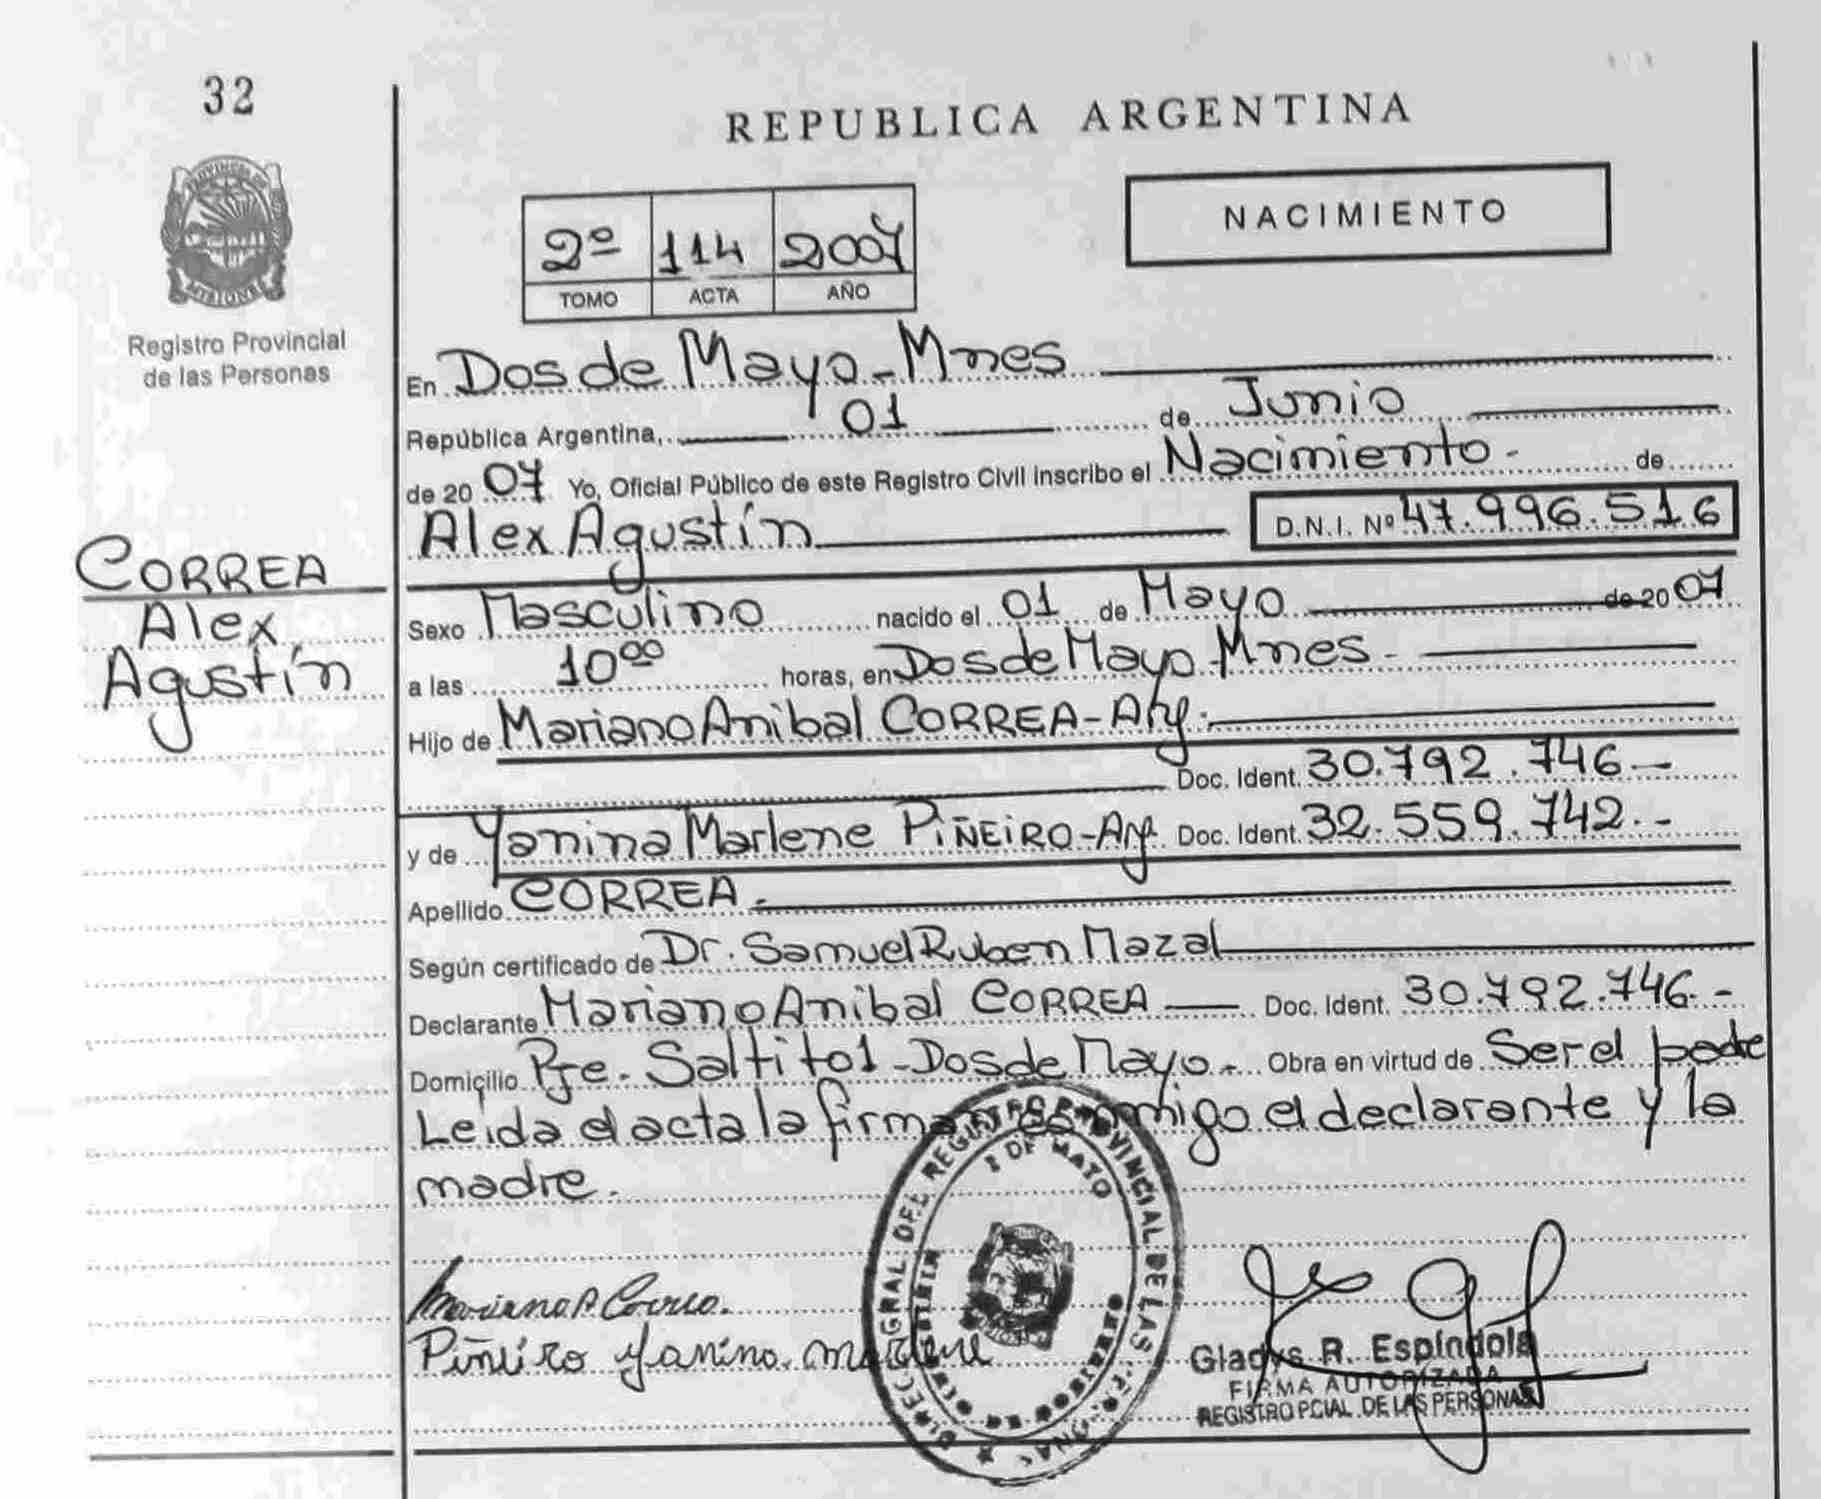 32
REPUBLICA ARGENTINA
PROVINCIA DE
MISIONES
Registro Provincial
de las Personas
NACIMIENTO
2º 114 2007
TOMO ACTA AÑO
En Dos de Mayo - Mnes
República Argentina, 01 de Junio
de 20 07 Yo, Oficial Público de este Registro Civil inscribo el Nacimiento - de
Alex Agustín D.N.I. Nº 47.996.516
CORREA
Alex
Agustín
Sexo Masculino nacido el 01 de Mayo de 20 07
a las 10⁰⁰ horas, en Dos de Mayo - Mnes -
Hijo de Mariano Anibal CORREA - Arg.
Doc. Ident. 30.792.746 -
y de Yanina Marlene PIÑEIRO - Arg. Doc. Ident. 32.559.742. -
Apellido CORREA. -
Según certificado de Dr. Samuel Ruben Mazal
Declarante Mariano Anibal CORREA Doc. Ident. 30.792.746. -
Domicilio Pje. Saltito 1 - Dos de Mayo. - Obra en virtud de Ser el padre
Leida el acta la firman conmigo el declarante y la
madre.
DIREC. GRAL DEL REGISTRO PROVINCIAL DE LAS
2 DE MAYO
Mariano A. Correa.
Piñeiro Yanina. Marlene
Gladys R. Espíndola
FIRMA AUTORIZADA
REGISTRO PCIAL. DE LAS PERSONAS